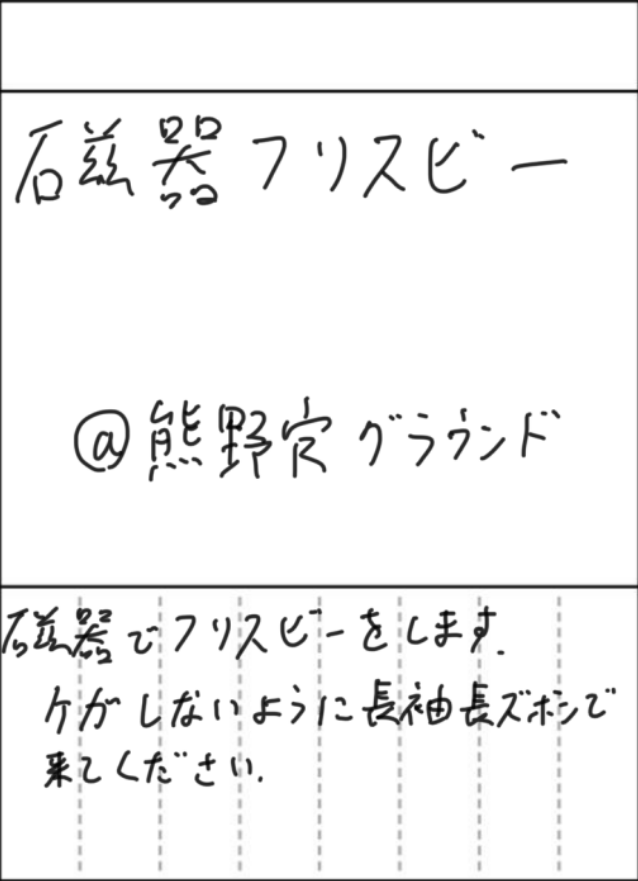 磁器フリスビー
@熊野穴グラウンド
磁器でフリスビーをします.
ケガしないように長袖長ズボンで
来てください.